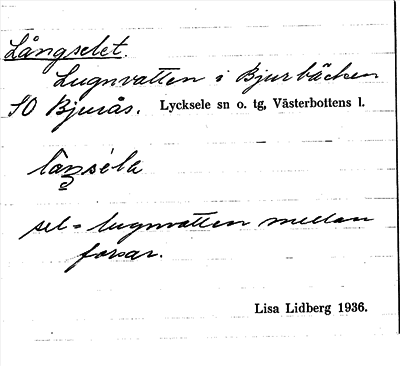 Långselet.
Lugnvatten i Bjurbäcken
SO Bjurås. Lycksele sn o. tg, Västerbottens l.
sel = lugnvatten mellan
forsar.
Lisa Lidberg 1936.